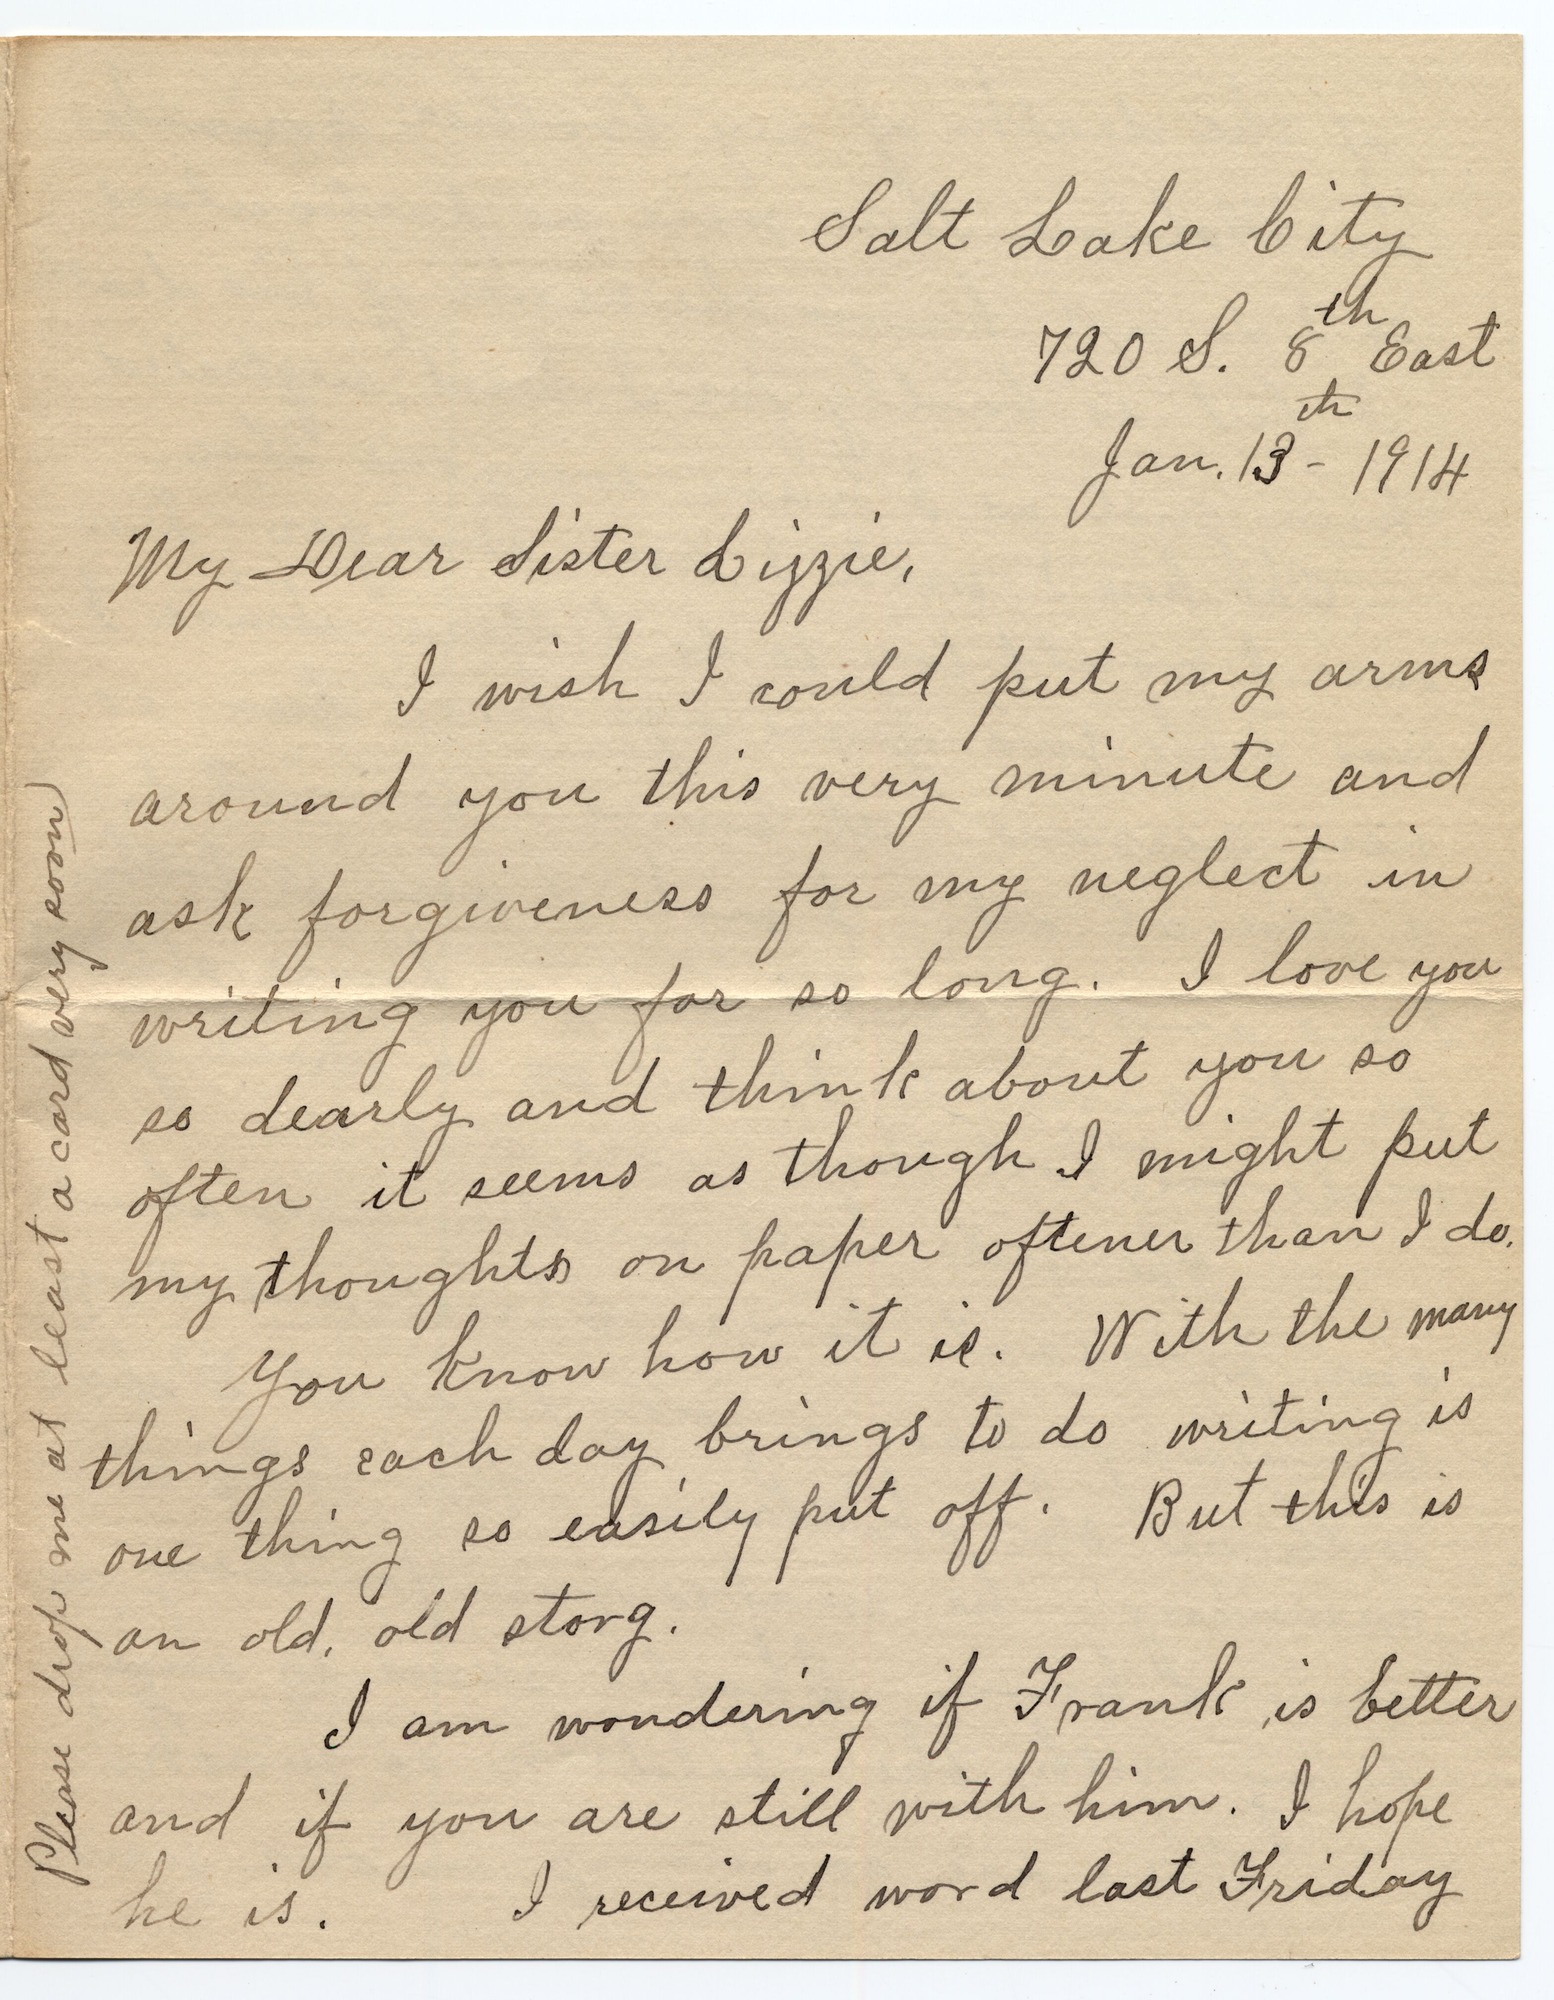 Salt Lake City
720 S. 8th East
Jan. 13th - 1914
My Dear Sister Lizzie,
I wish I could put my arms
around you this very minute and
ask forgiveness for my neglect in
writing you for so long. I love you
so dearly and think about you so
often it seems as though I might put
my thoughts on paper oftener than I do.
You know how it is. With the many
things each day brings to do writing is
one thing so easily put off. But this is
an old, old story.
I am wondering if Frank is better
and if you are still with him. I hope
he is. I received word last Friday
Please drop me at least a card very soon)